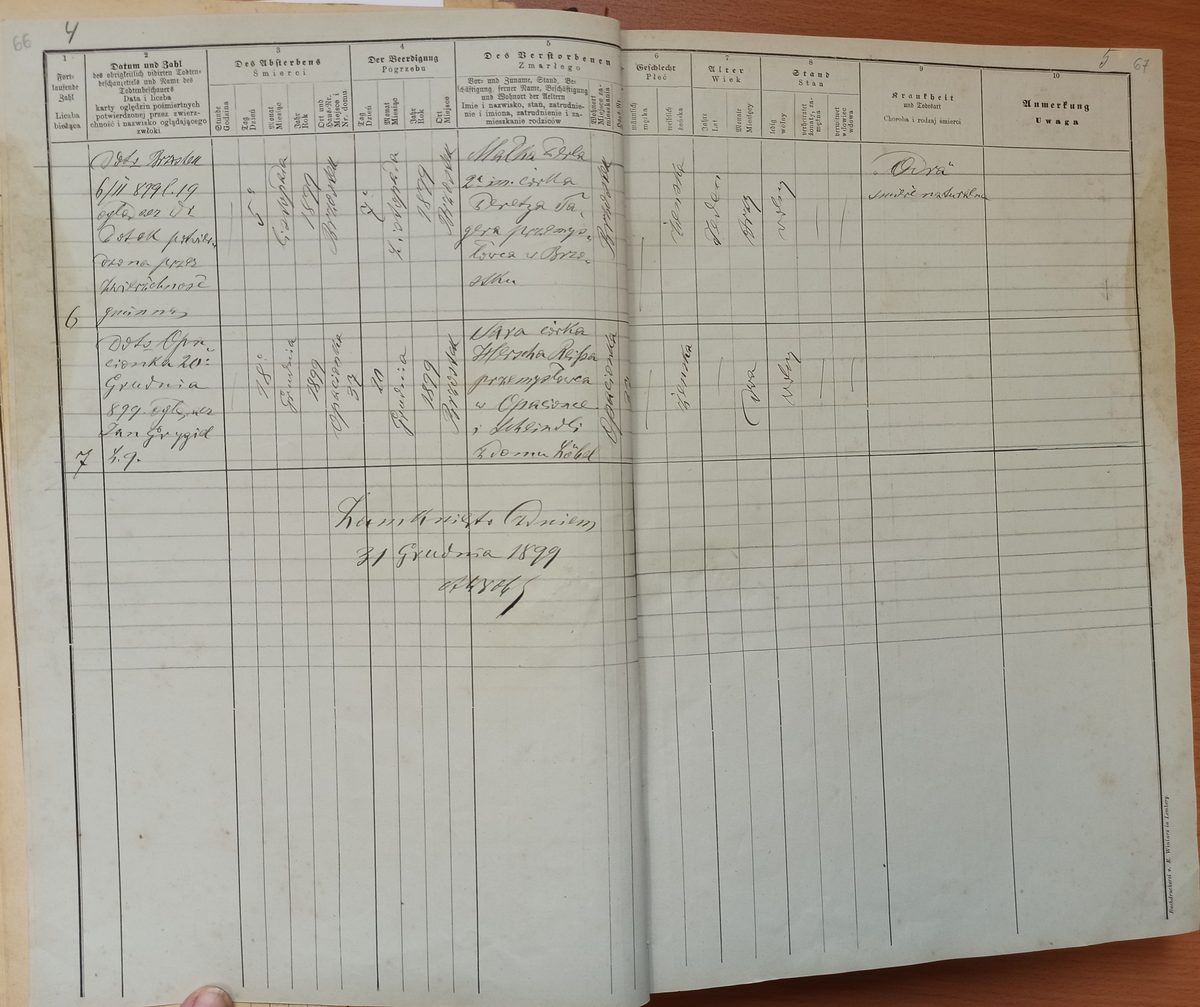 66
4
1
Fort-
laufende
Zahl
Liczba
bieżąca
2
Datum und Zahl
des obrigkeitlich vidirten Todten-
beschauzettels und Name des
Todtenbeschauers
Data i liczba
karty oględzin pośmiertnych
potwierdzonej przez zwierz-
chność i nazwisko oglądającego
zwłoki
3
Des Absterbens
Śmierci
Stunde
Godzina
Tag
Dzień
Monat
Miesiąc
Jahr
Rok
Ort und
Haus-Nr.
Miejsce i
Nr. domu
4
Der Beerdigung
Pogrzebu
Tag
Dzień
Monat
Miesiąc
Jahr
Rok
Ort
Miejsce
5
Des Verstorbenen
Zmarłego
Vor- und Zuname, Stand, Be-
schäftigung, ferner Name, Beschäftigung
und Wohnort der Aeltern
Imie i nazwisko, stan, zatrudnie-
nie i imiona, zatrudnienie i za-
mieszkanie rodziców
Wohnort
Miejsce za-
mieszkania
6
Geschlecht
Płeć
männlich
męzka
weiblich
żeńska
7
Alter
Wiek
Jahre
Lat
Monate
Miesięcy
8
Stand
Stan
ledig
wolny
verheiratet
żonaty, za-
mężna
verwitwet
wdowiec
wdowa
9
Krankheit
und Todesart
Choroba i rodzaj śmierci
10
Anmerkung
Uwaga
5
67
6
Ddto Brzostek
6/II 899 l. 19
Dotok potwier-
dzona przez
Zwierzchność
gminną
5
Listopada
1899
Brzostek
7
Listopada
1899
Brzostek
Malka
2a im. córka
gera przemys-
łowca w Brzo-
stku
Brzostek
żeńska
Jeden
trzy
wolny
Odra
śmierć naturalna
7
Ddto Opa-
cionka 20
Grudnia
899
Jan Grygiel
18
Grudnia
1899
Opacionka
33
20
Grudnia
1899
Brzostek
Sara córka
Herscha Reissa
przemysłowca
w Opacionce
i Scheindli
z domu Löbel
Opacionka
żeńska
dwa
wolny
Zamknięto dniem
31 Grudnia 1899
Buchdruckerei v. E. Winiarz in Lemberg.